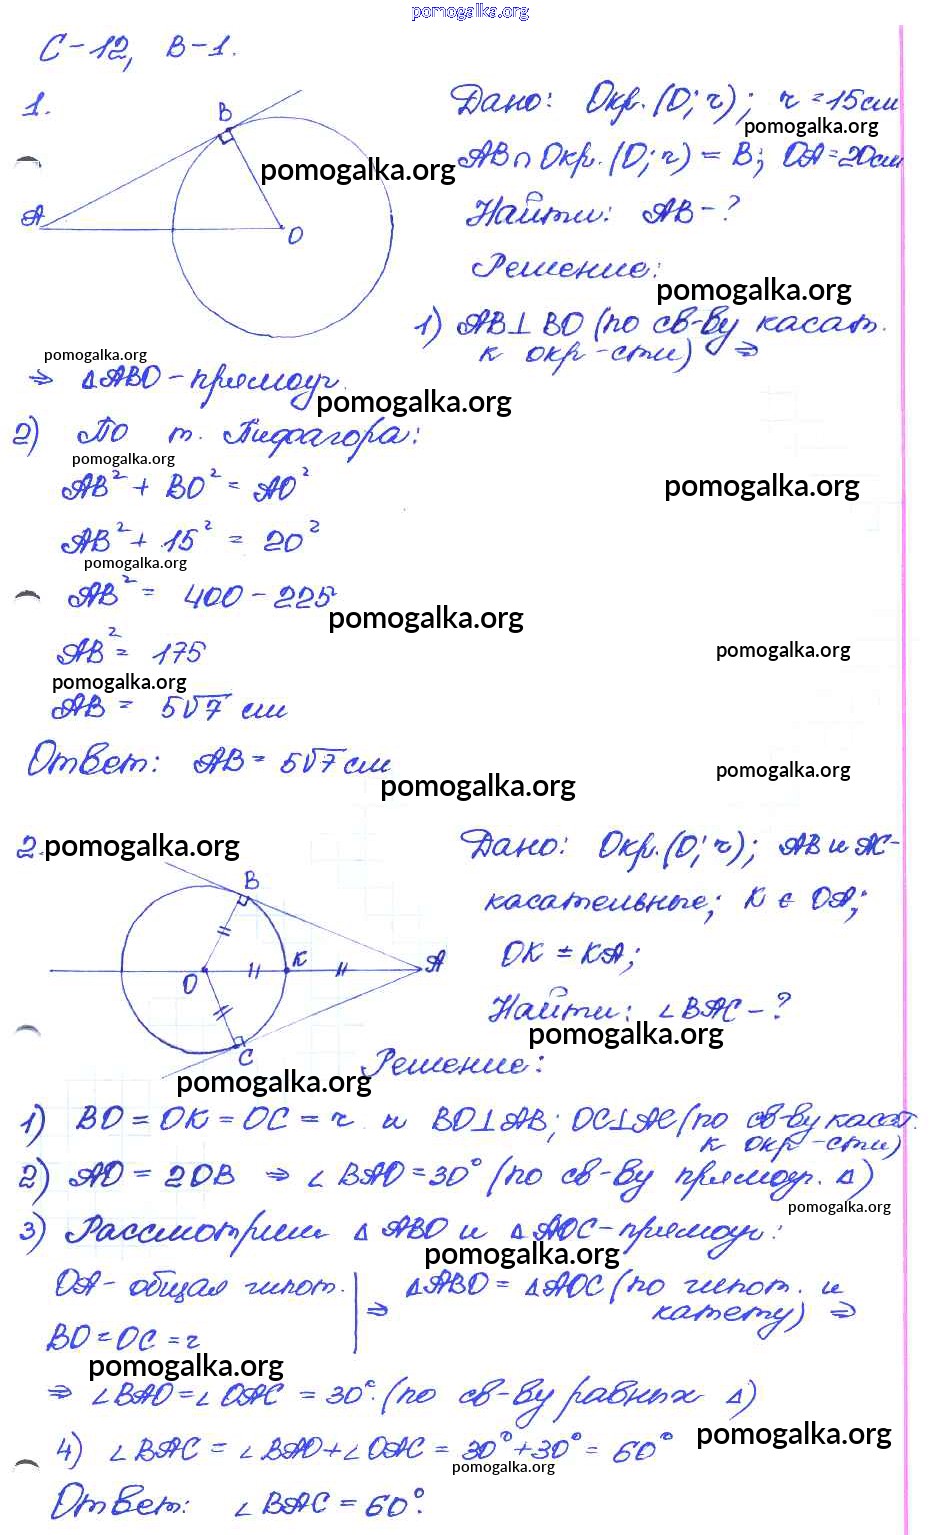 pomogalka.org
С-12, В-1.
1.
Дано: Окр. (О; r); r = 15см
pomogalka.org
AB ∩ Окр. (О; r) = B; OA = 20см
pomogalka.org
Найти: AB - ?
Решение:
pomogalka.org
1) AB ⊥ BO (по св-ву касат.
к окр-сти) ⇒
A B O
pomogalka.org
⇒ △ABO - прямоуг.
pomogalka.org
2) По т. Пифагора:
pomogalka.org
AB² + BO² = AO²
pomogalka.org
AB² + 15² = 20²
pomogalka.org
AB² = 400 - 225
pomogalka.org
AB² = 175
pomogalka.org
pomogalka.org
AB = 5√7 см
Ответ: AB = 5√7 см
pomogalka.org
pomogalka.org
2. pomogalka.org
Дано: Окр. (О; r); AB и AC-
касательные; K ∈ OA;
OK = KA;
Найти: ∠BAC - ?
pomogalka.org
B K A O C
Решение:
pomogalka.org
1) BO = OK = OC = r и BO ⊥ AB; OC ⊥ AC (по св-ву касат.
к окр-сти)
2) AO = 2OB ⇒ ∠BAO = 30° (по св-ву прямоуг. △)
pomogalka.org
3) Рассмотрим △ABO и △AOC - прямоуг.:
pomogalka.org
OA - общая гипот. | ⇒ △ABO = △AOC (по гипот. и
катету) ⇒
BO = OC = r
pomogalka.org
⇒ ∠BAO = ∠OAC = 30°. (по св-ву равных △)
pomogalka.org
4) ∠BAC = ∠BAO + ∠OAC = 30° + 30° = 60°
pomogalka.org
Ответ: ∠BAC = 60°.